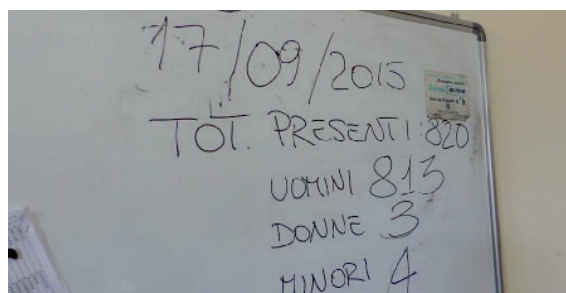 17/09/2015
TOT. PRESENTI: 820
UOMINI 813
DONNE 3
MINORI 4